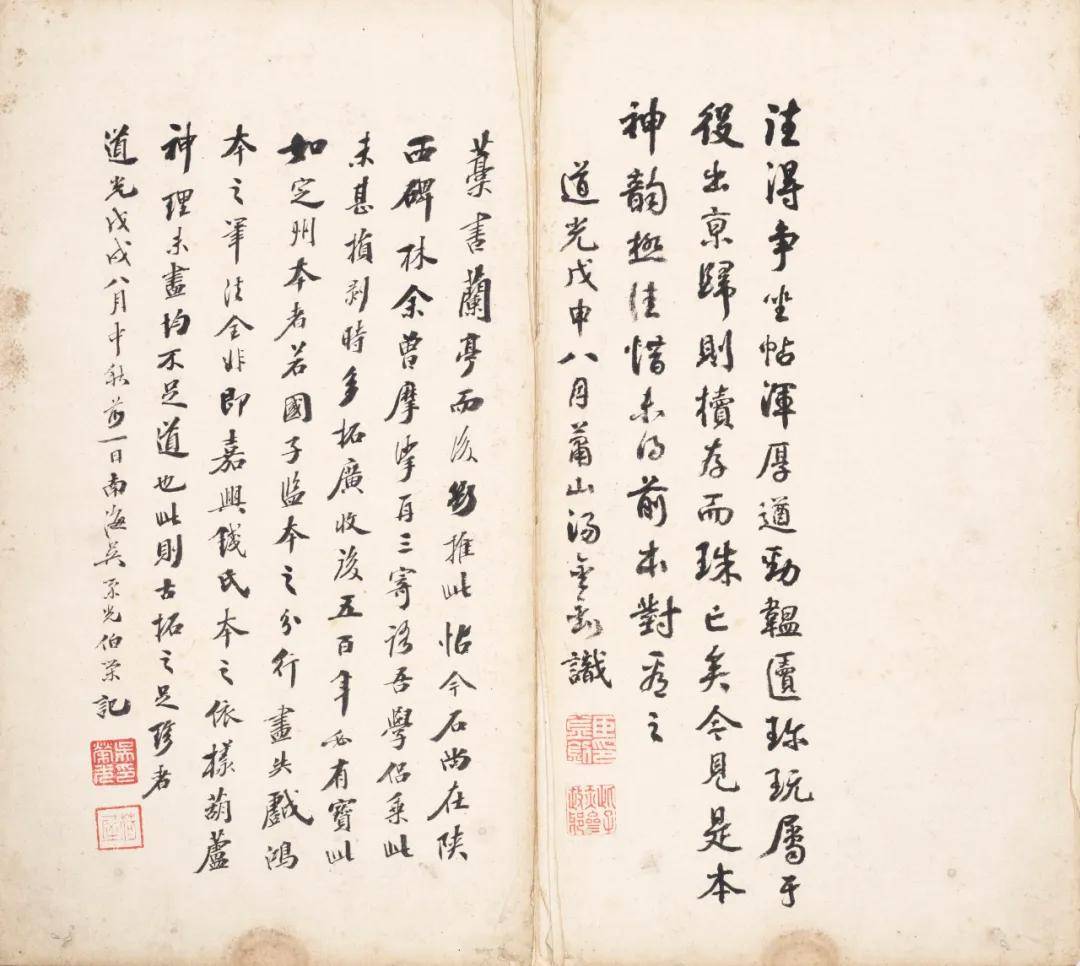 往得争坐帖渾厚遒勁韞匵珎玩屬于
役出京歸則櫝存而珠亡矣今見是本
神韵極佳惜未得前本對看之
道光戊申八月蕭山湯金釗識
藁書蘭亭而後斷推此帖今石尚在陝
西碑林余曾摩挲再三寄語吾學侣乘此
未甚損剥時多拓廣收後五百年必有寶此
如定州本者若國子監本之分行畫失戲鴻
本之筆法全非即嘉興錢氏本之依樣葫蘆
神理未盡均不足道也此則古拓之足珍者
道光戊戌八月中秋前一日南海吳榮光伯榮記